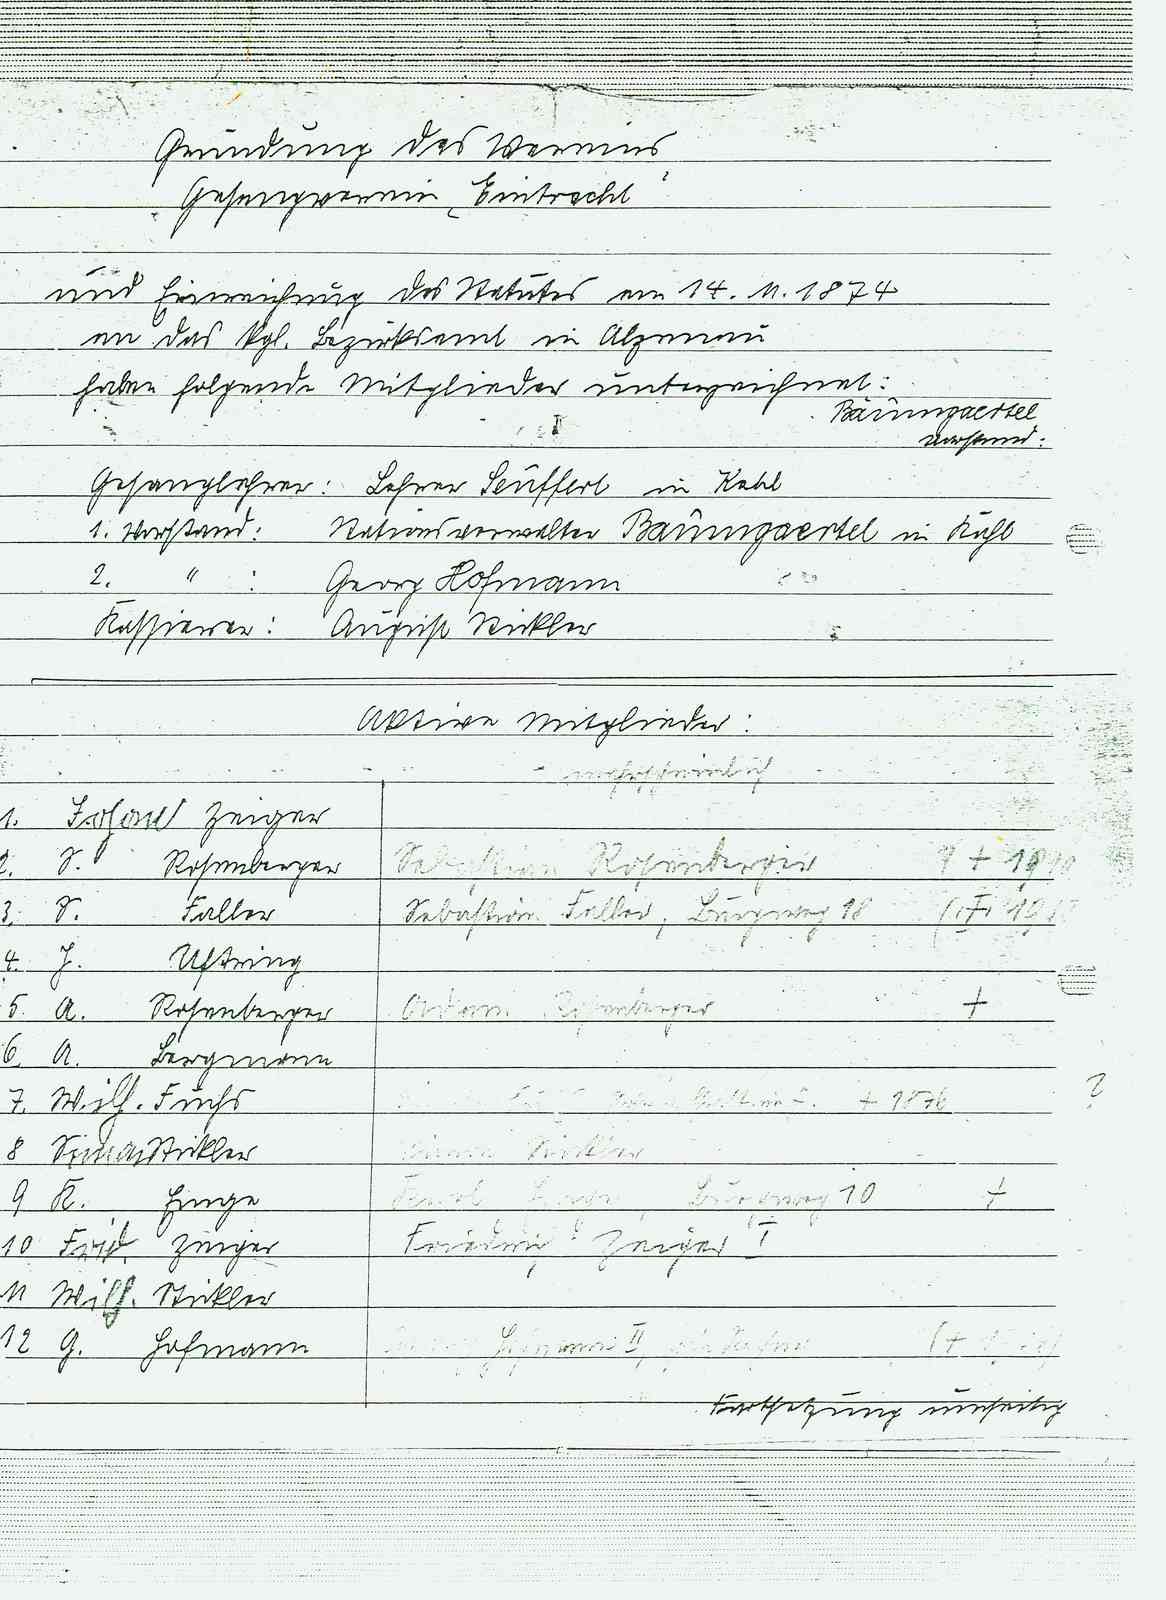 Gründung des Vereins
Gesangverein „Eintracht"
und Einreichung des Statutes am 14. 11. 1874
an das Kgl. Bezirksamt in Alzenau
haben folgende Mitglieder unterzeichnet:
Bäumgaertel
Vorstand:
Gesanglehrer: Lehrer Seuffert in Kahl
1. Vorstand: Stationsverwalter Baumgaertel in Kahl
2. " : Georg Hofmann
Kassierer: August Stickler
Aktive Mitglieder:
wahrscheinlich
1. Johann Zeiger
2. S. Rosenberger Sebastian Rosenberger ? + 19
3. S. Faller Sebastian Faller, Burgweg 18
4. J. Uftring
5. A. Rosenberger Adam Rosenberger +
6. A. Bergmann
7. Wilh. Fuchs + 1876 ?
8 Simon Stickler Simon Stickler
9 K. Huge Karl Burgweg 10 +
10 Fried. Zeiger Friedrich Zeiger I
11 Wilh. Stickler
12 G. Hofmann Hofmann II,
Fortsetzung umseitig